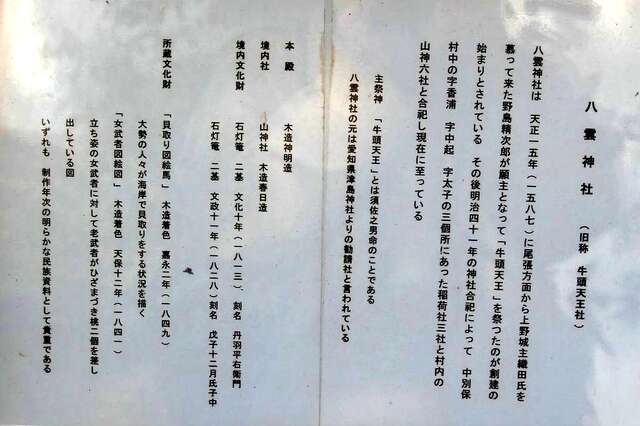 八雲神社 （旧称 牛頭天王社）
八雲神社は 天正一五年（一五八七）に尾張方面から上野城主織田氏を
慕って来た野島精次郎が願主となって「牛頭天王」を祭つたのが創建の
始まりとされている その後明治四十一年の神社合祀によって 中別保
村中の字香浦 字中起 字太子の三個所にあった稲荷社三社と村内の
山神六社と合祀し現在に至っている
主祭神 「牛頭天王」とは須佐之男命のことである
八雲神社の元は愛知県津島神社よりの勧請社と言われている
本殿 木造神明造
境内社 山神社 木造春日造
境内文化財 石灯篭 二基 文化十年（一八一三）、刻名 丹羽平右衛門
石灯篭 二基 文政十一年（一八二八）刻名 戊子十二月氏子中
所蔵文化財 「貝取り図絵馬」 木造着色 嘉永二年（一八四九）
大勢の人々が海岸で貝取りをする状況を描く
「女武者図絵図」 木造着色 天保十二年（一八四一）
立ち姿の女武者に対して老武者がひざまづき桃二個を差し
出している図
いずれも 制作年次の明らかな民族資料として貴重である